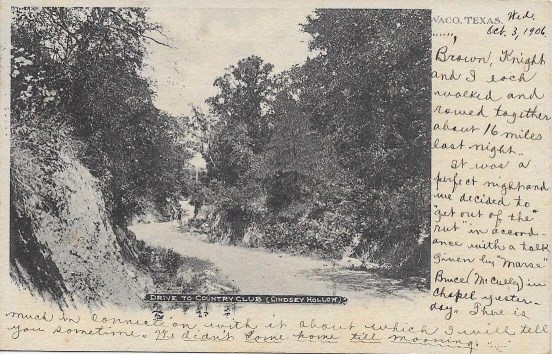 WACO, TEXAS. Wed.
Oct. 3, 1906
Brown, Knight
and I each
walked and
rowed together
about 16 miles
last night.
It was a
perfect night and
we decided to
"get out of the
rut" in accord-
ance with a talk
given by "Marse"
Bruce (McCully) in
Chapel yester-
day. There is
DRIVE TO COUNTRY CLUB (LINDSEY HOLLOW)
much in connection with it about which I will tell
you sometime. We didn't come home till morning.